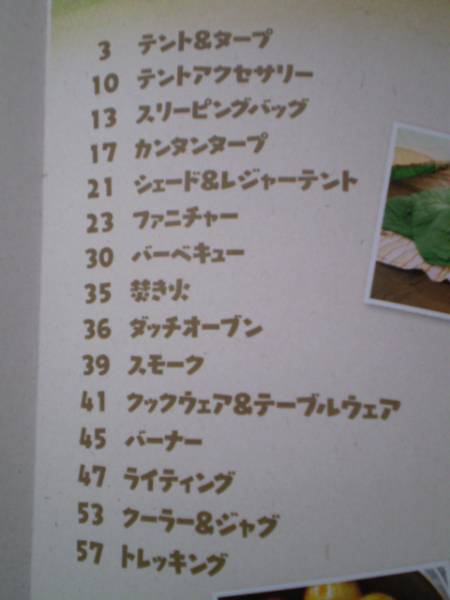 3 テント&タープ
10 テントアクセサリー
13 スリーピングバッグ
17 カンタンタープ
21 シェード&レジャーテント
23 ファニチャー
30 バーベキュー
35 焚き火
36 ダッチオーブン
39 スモーク
41 クックウェア&テーブルウェア
45 バーナー
47 ライティング
53 クーラー&ジャグ
57 トレッキング